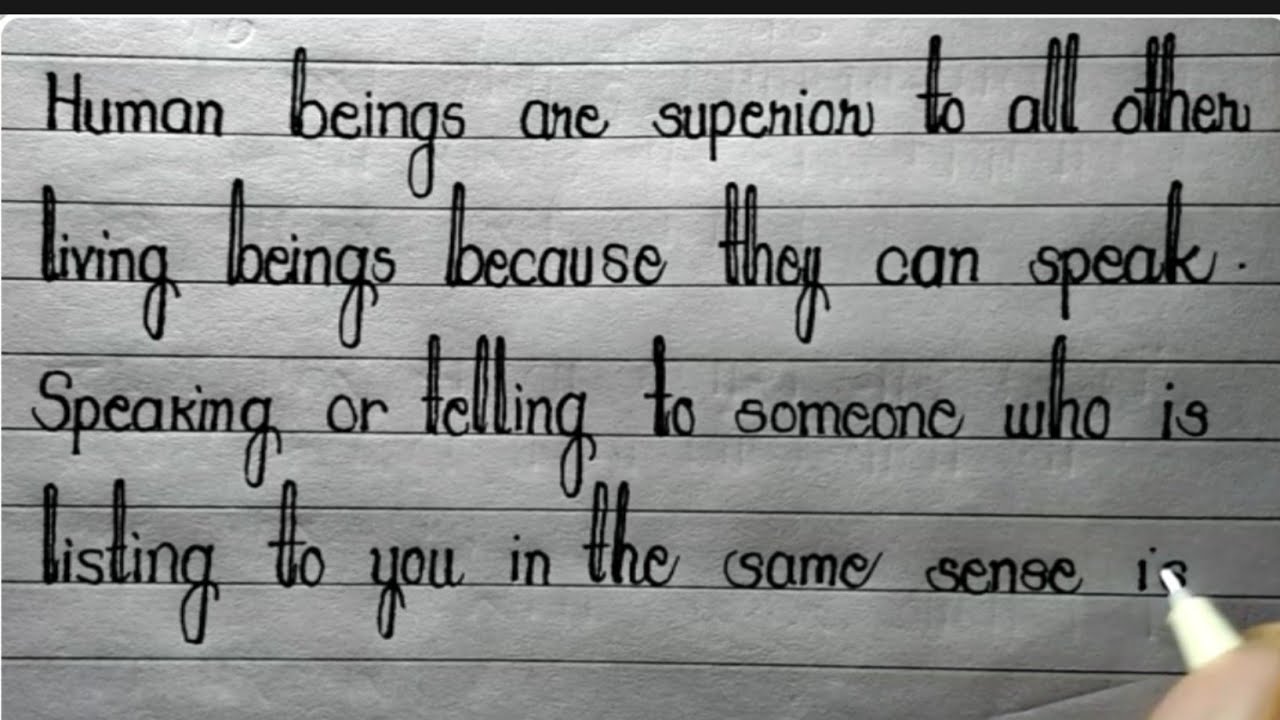 Human beings are superior to all other
living beings because they can speak.
Speaking or telling to someone who is
listing to you in the same sense is